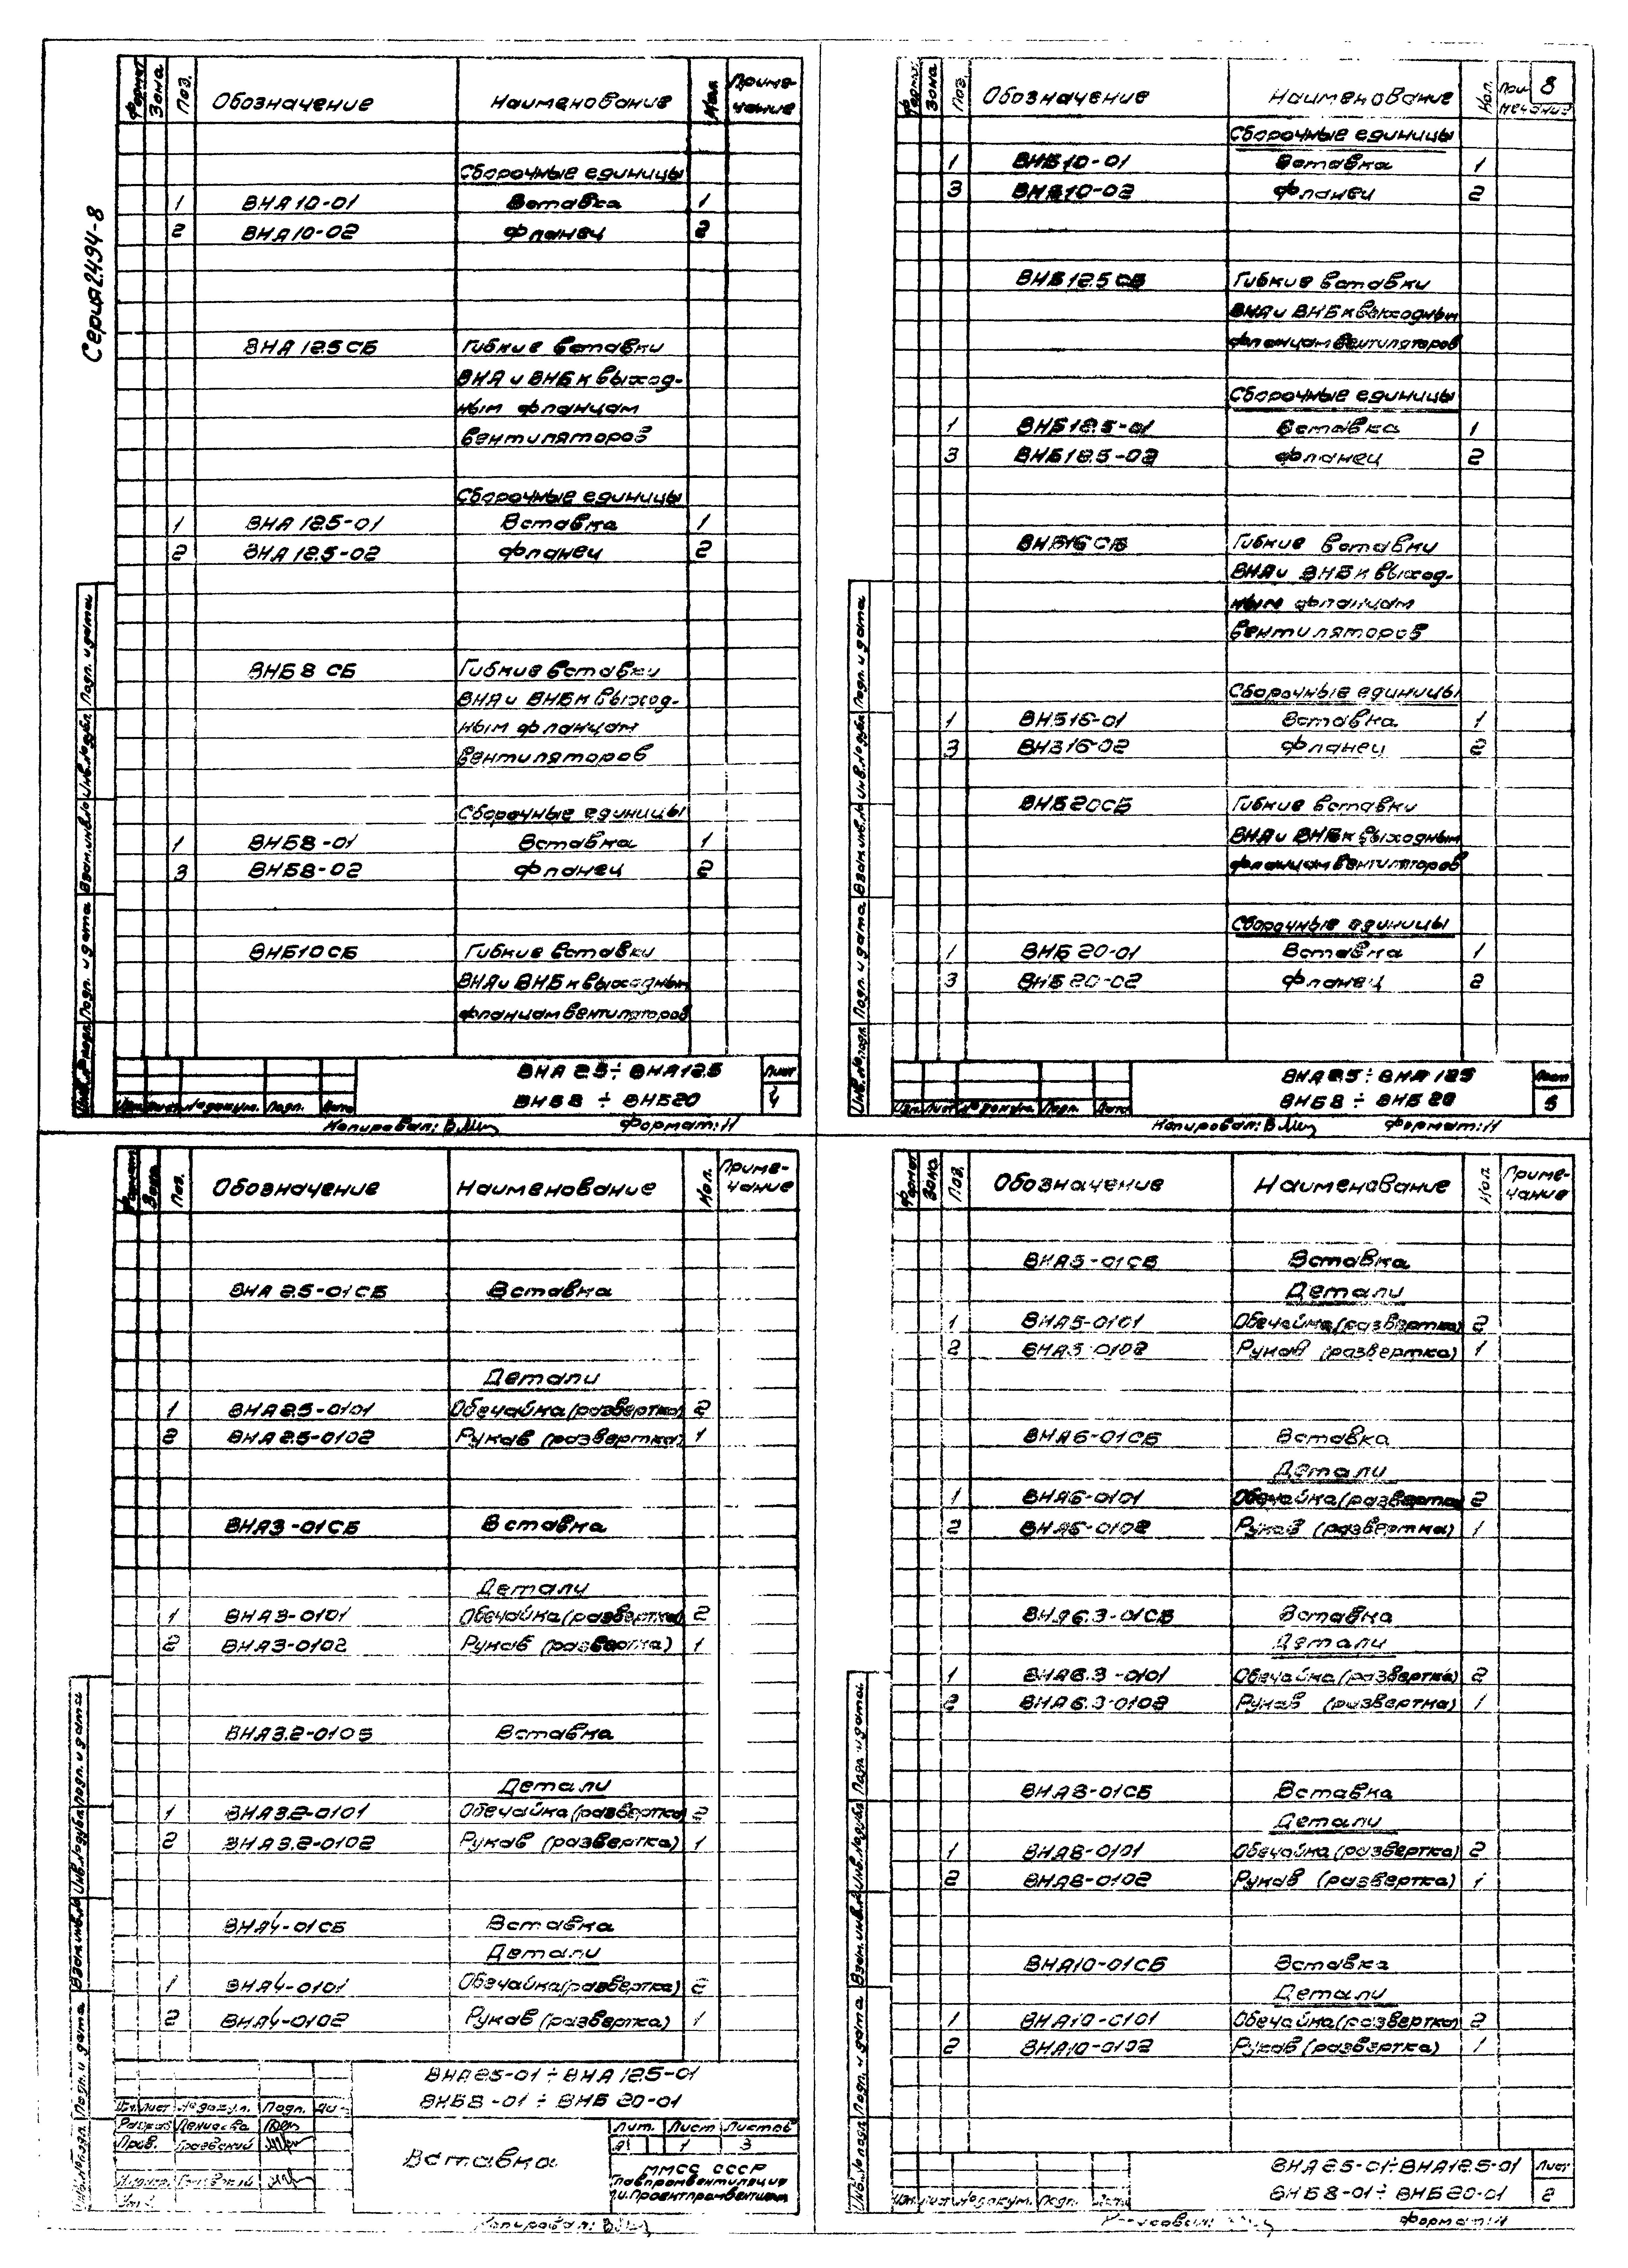 Серия 2.494-8
Формат Зона Поз. Обозначение Наименование Кол. Приме-
чание
Сборочные единицы
1 ВНА 10-01 Вставка 1
2 ВНА 10-02 Фланец 2
ВНА 12.5 СБ Гибкие вставки
ВНА и ВНБ к выход-
ным фланцам
вентиляторов
Сборочные единицы
1 ВНА 12.5-01 Вставка 1
2 ВНА 12.5-02 Фланец 2
ВНБ 8 СБ Гибкие вставки
ВНА и ВНБ к выход-
ным фланцам
вентиляторов
Сборочные единицы
1 ВНБ8-01 Вставка 1
3 ВНБ8-02 Фланец 2
ВНБ10СБ Гибкие вставки
ВНА и ВНБ к выходным
фланцам вентиляторов
Инв. № подл. Подп. и дата Взам. инв. № Инв. № дубл. Подп. и дата
ВНА 2.5 ÷ ВНА 12.5 Лист
ВНБ 8 ÷ ВНБ 20 4
Изм. Лист № докум. Подп. Дата
Копировал: Формат: 11
8
Формат Зона Поз. Обозначение Наименование Кол. При
мечание
Сборочные единицы
1 ВНБ 10-01 Вставка 1
3 ВНБ 10-02 Фланец 2
ВНБ 12.5 СБ Гибкие вставки
ВНА и ВНБ к выходным
фланцам вентиляторов
Сборочные единицы
1 ВНБ 12.5-01 Вставка 1
3 ВНБ 12.5-02 Фланец 2
ВНБ16 СБ Гибкие вставки
ВНА и ВНБ к выход-
ным фланцам
вентиляторов
Сборочные единицы
1 ВНБ16-01 Вставка 1
3 ВНБ16-02 Фланец 2
ВНБ 20СБ Гибкие вставки
ВНА и ВНБ к выходным
фланцам вентиляторов
Сборочные единицы
1 ВНБ 20-01 Вставка 1
3 ВНБ 20-02 Фланец 2
Инв. № подл. Подп. и дата Взам. инв. № Инв. № дубл. Подп. и дата
ВНА 2.5 ÷ ВНА 12.5 Лист
ВНБ 8 ÷ ВНБ 20 5
Изм. Лист № докум. Подп. Дата
Копировал: Формат: 11
Формат Зона Поз. Обозначение Наименование Кол. Приме-
чание
ВНА 2.5-01 СБ Вставка
Детали
1 ВНА 2.5-0101 Обечайка (развертка) 2
2 ВНА 2.5-0102 Рукав (развертка) 1
ВНА3-01СБ Вставка
Детали
1 ВНА3-0101 Обечайка (развертка) 2
2 ВНА3-0102 Рукав (развертка) 1
ВНА3.2-01СБ Вставка
Детали
1 ВНА3.2-0101 Обечайка (развертка) 2
2 ВНА3.2-0102 Рукав (развертка) 1
ВНА4-01СБ Вставка
Детали
1 ВНА4-0101 Обечайка (развертка) 2
2 ВНА4-0102 Рукав (развертка) 1
Инв. № подл. Подп. и дата Взам. инв. № Инв. № дубл. Подп. и дата
ВНА 2.5-01 ÷ ВНА 12.5-01
ВНБ8-01 ÷ ВНБ 20-01
Изм. Лист № докум. Подп.
Разраб. Денисова
Пров.
Вставка
Лит. Лист Листов
1 3
ММСС СССР
Главпромвентиляция
Копировал:
Формат Зона Поз. Обозначение Наименование Кол. Приме-
чание
ВНА5-01СБ Вставка
Детали
1 ВНА5-0101 Обечайка (развертка) 2
2 ВНА5-0102 Рукав (развертка) 1
ВНА6-01СБ Вставка
Детали
1 ВНА6-0101 Обечайка (развертка) 2
2 ВНА6-0102 Рукав (развертка) 1
ВНА6.3-01СБ Вставка
Детали
1 ВНА6.3-0101 Обечайка (развертка) 2
2 ВНА6.3-0102 Рукав (развертка) 1
ВНА8-01СБ Вставка
Детали
1 ВНА8-0101 Обечайка (развертка) 2
2 ВНА8-0102 Рукав (развертка) 1
ВНА10-01СБ Вставка
Детали
1 ВНА10-0101 Обечайка (развертка) 2
2 ВНА10-0102 Рукав (развертка) 1
Инв. № подл. Подп. и дата Взам. инв. № Инв. № дубл. Подп. и дата
ВНА 2.5-01 ÷ ВНА12.5-01 Лист
ВНБ8-01 ÷ ВНБ20-01 2
Изм. Лист № докум. Подп. Дата
Формат: 11